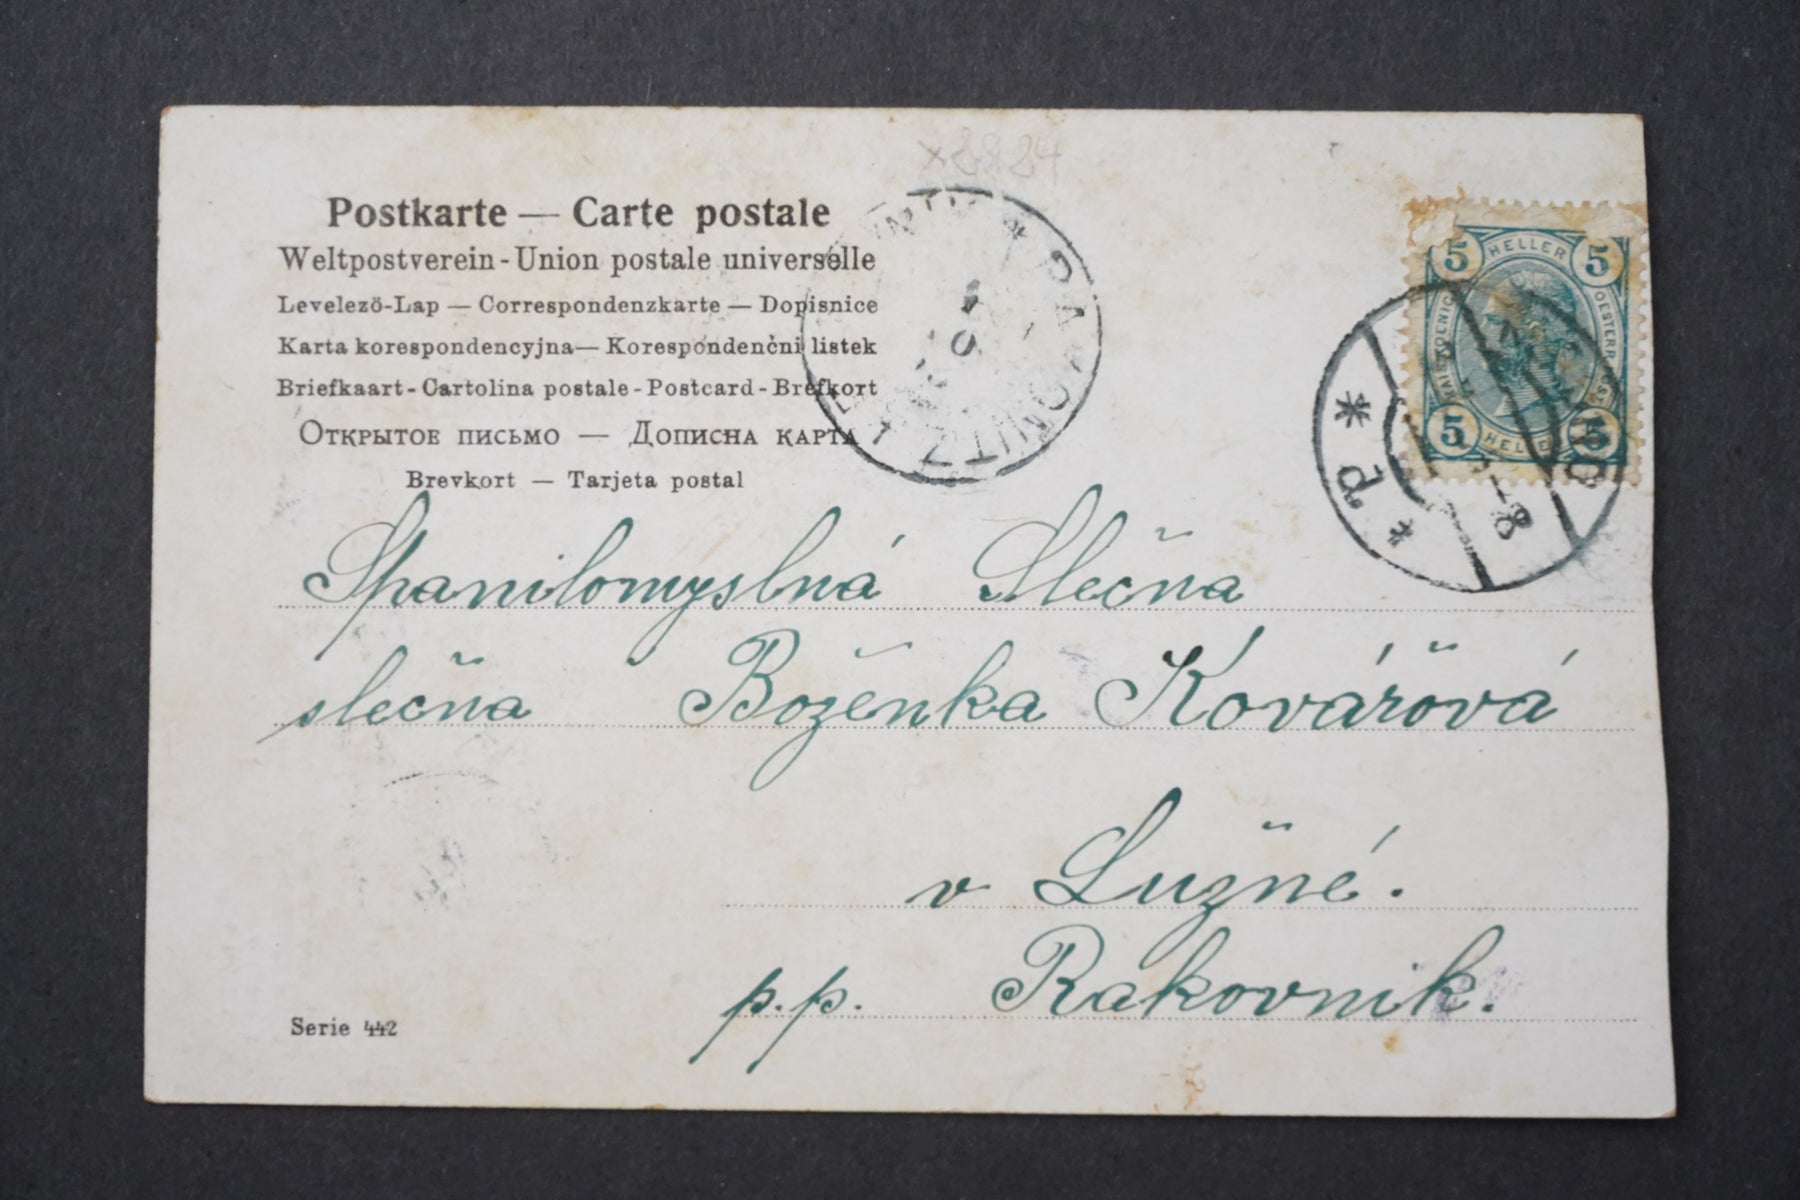 Postkarte — Carte postale
Weltpostverein - Union postale universelle
Levelező-Lap — Correspondenzkarte — Dopisnice
Karta korespondencyjna — Korespondenčni listek
Briefkaart - Cartolina postale - Postcard - Brefkort
Открытое письмо — Дописна карта
Brevkort — Tarjeta postal
5 HELLER 5
5 HELLER 5
Spanilomyslná Slečna
slečna Boženka Kovářová
v Lužné.
p.p. Rakovnik.
Serie 442